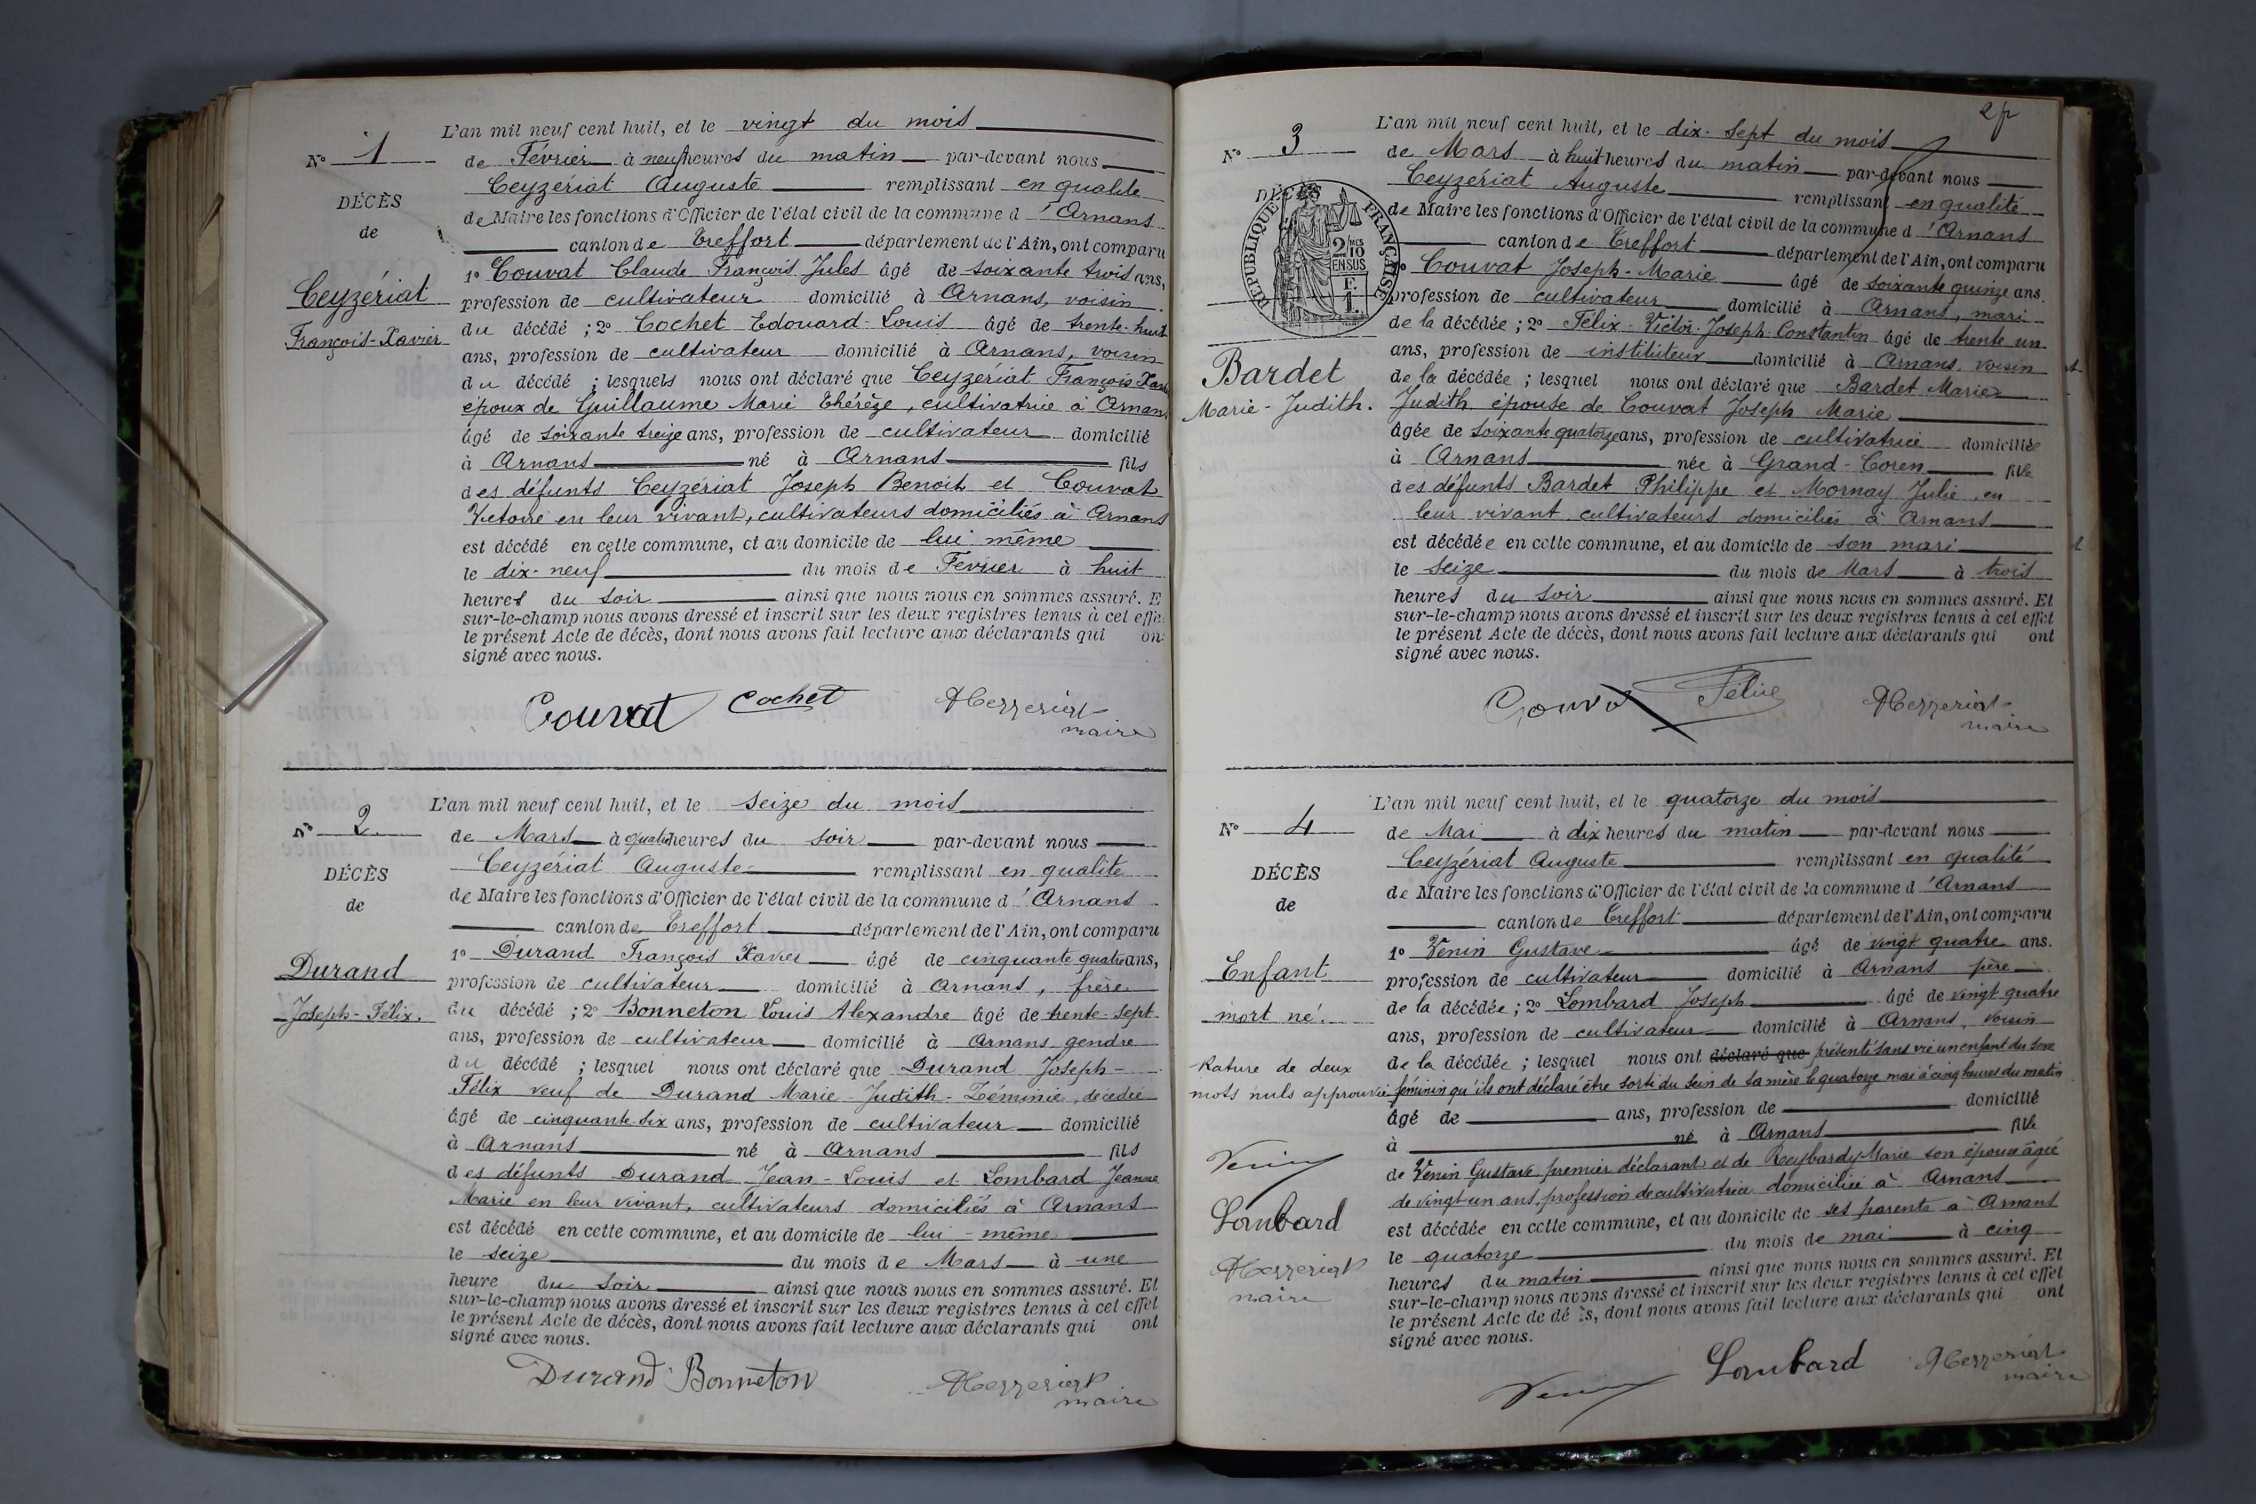 N° 1
DÉCÈS
de
Ceyzériat
François-Xavier
L'an mil neuf cent huit, et le vingt du mois
de Février à neuf heures du matin par-devant nous
Ceyzériat Auguste remplissant en qualité
de Maire les fonctions d'Officier de l'état civil de la commune d'Arnans
canton de Treffort département de l'Ain, ont comparu
1° Couvat Claude François Jules âgé de soixante trois ans,
profession de cultivateur domicilié à Arnans, voisin
du décédé ; 2° Cochet Edouard-Louis âgé de trente-huit
ans, profession de cultivateur domicilié à Arnans, voisin
du décédé ; lesquels nous ont déclaré que Ceyzériat François-Xavier
époux de Guillaume Marie Thérèze, cultivatrice à Arnans
âgé de soixante treize ans, profession de cultivateur domicilié
à Arnans né à Arnans fils
des défunts Ceyzériat Joseph Benoit et Couvat
Victoire en leur vivant, cultivateurs domiciliés à Arnans
est décédé en cette commune, et au domicile de lui même
le dix-neuf du mois de Février à huit
heures du soir ainsi que nous nous en sommes assuré. E
sur-le-champ nous avons dressé et inscrit sur les deux registres tenus à cet effe
le présent Acte de décès, dont nous avons fait lecture aux déclarants qui on
signé avec nous.
Couvat Cochet ACeyzeriat
maire
N° 2
DÉCÈS
de
Durand
Joseph-Félix.
L'an mil neuf cent huit, et le seize du mois
de Mars à quatre heures du soir par-devant nous
Ceyzériat Auguste remplissant en qualité
de Maire les fonctions d'Officier de l'état civil de la commune d'Arnans
canton de Treffort département de l'Ain, ont comparu
1° Durand François Xavier âgé de cinquante quatre ans,
profession de cultivateur domicilié à Arnans, frère
du décédé ; 2° Bonneton Louis Alexandre âgé de trente-sept
ans, profession de cultivateur domicilié à Arnans gendre
du décédé ; lesquel nous ont déclaré que Durand Joseph-
Félix veuf de Durand Marie-Judith-Zéminie, décédée
âgé de cinquante-six ans, profession de cultivateur domicilié
à Arnans né à Arnans fils
des défunts Durand Jean-Louis et Lombard Jeanne
Marie en leur vivant, cultivateurs domiciliés à Arnans
est décédé en cette commune, et au domicile de lui-même
le seize du mois de Mars à une
heure du soir ainsi que nous nous en sommes assuré. Et
sur-le-champ nous avons dressé et inscrit sur les deux registres tenus à cet effet
le présent Acte de décès, dont nous avons fait lecture aux déclarants qui ont
signé avec nous.
Durand Bonneton ACeyzeriat
maire
N° 3
DÉCÈS
RÉPUBLIQUE FRANÇAISE
2/10
EN SUS
Bardet
Marie-Judith.
L'an mil neuf cent huit, et le dix-sept du mois
de Mars à huit heures du matin par-devant nous
Ceyzériat Auguste remplissant en qualité
de Maire les fonctions d'Officier de l'état civil de la commune d'Arnans
canton de Treffort département de l'Ain, ont comparu
1° Couvat Joseph-Marie âgé de soixante quinze ans.
profession de cultivateur domicilié à Arnans, mari
de la décédée ; 2° Félix-Victor-Joseph-Constantin âgé de trente un
ans, profession de instituteur domicilié à Arnans, voisin
de la décédée ; lesquel nous ont déclaré que Bardet Marie
Judith épouse de Couvat Joseph Marie
âgée de soixante quatorze ans, profession de cultivatrice domiciliée
à Arnans née à Grand-Coren fille
des défunts Bardet Philippe et Mornay Julie, en
leur vivant cultivateurs domiciliés à Arnans
est décédée en cette commune, et au domicile de son mari
le seize du mois de Mars à trois
heures du soir ainsi que nous nous en sommes assuré. Et
sur-le-champ nous avons dressé et inscrit sur les deux registres tenus à cet effet
le présent Acte de décès, dont nous avons fait lecture aux déclarants qui ont
signé avec nous.
Couvat Félix ACeyzeriat
maire
N° 4
DÉCÈS
de
Enfant
mort né.
Rature de deux
mots nuls approuvée
Venin
Lombard
ACeyzeriat
maire
L'an mil neuf cent huit, et le quatorze du mois
de Mai à dix heures du matin par-devant nous
Ceyzériat Auguste remplissant en qualité
de Maire les fonctions d'Officier de l'état civil de la commune d'Arnans
canton de Treffort département de l'Ain, ont comparu
1° Venin Gustave âgé de vingt quatre ans.
profession de cultivateur domicilié à Arnans père
de la décédée ; 2° Lombard Joseph âgé de vingt quatre
ans, profession de cultivateur domicilié à Arnans, voisin
de la décédée ; lesquel nous ont déclaré que présenté sans vie un enfant du sexe
féminin qu'ils ont déclaré être sorti du sein de sa mère le quatorze mai à cinq heures du matin
âgé de ans, profession de domicilié
à né à Arnans fille
de Venin Gustave premier déclarant et de Reybardy Marie son épouse âgée
de vingt-un ans, profession de cultivatrice domiciliée à Arnans
est décédée en cette commune, et au domicile de ses parents à Arnans
le quatorze du mois de mai à cinq
heures du matin ainsi que nous nous en sommes assuré. Et
sur-le-champ nous avons dressé et inscrit sur les deux registres tenus à cet effet
le présent Acte de décès, dont nous avons fait lecture aux déclarants qui ont
signé avec nous.
Venin Lombard ACeyzeriat
maire